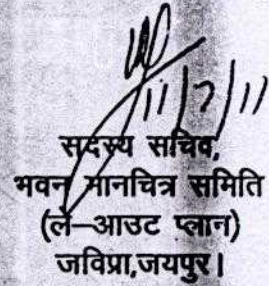 11/7/11
सदस्य सचिव,
भवन मानचित्र समिति
(ले–आउट प्लान)
जविप्रा,जयपुर।